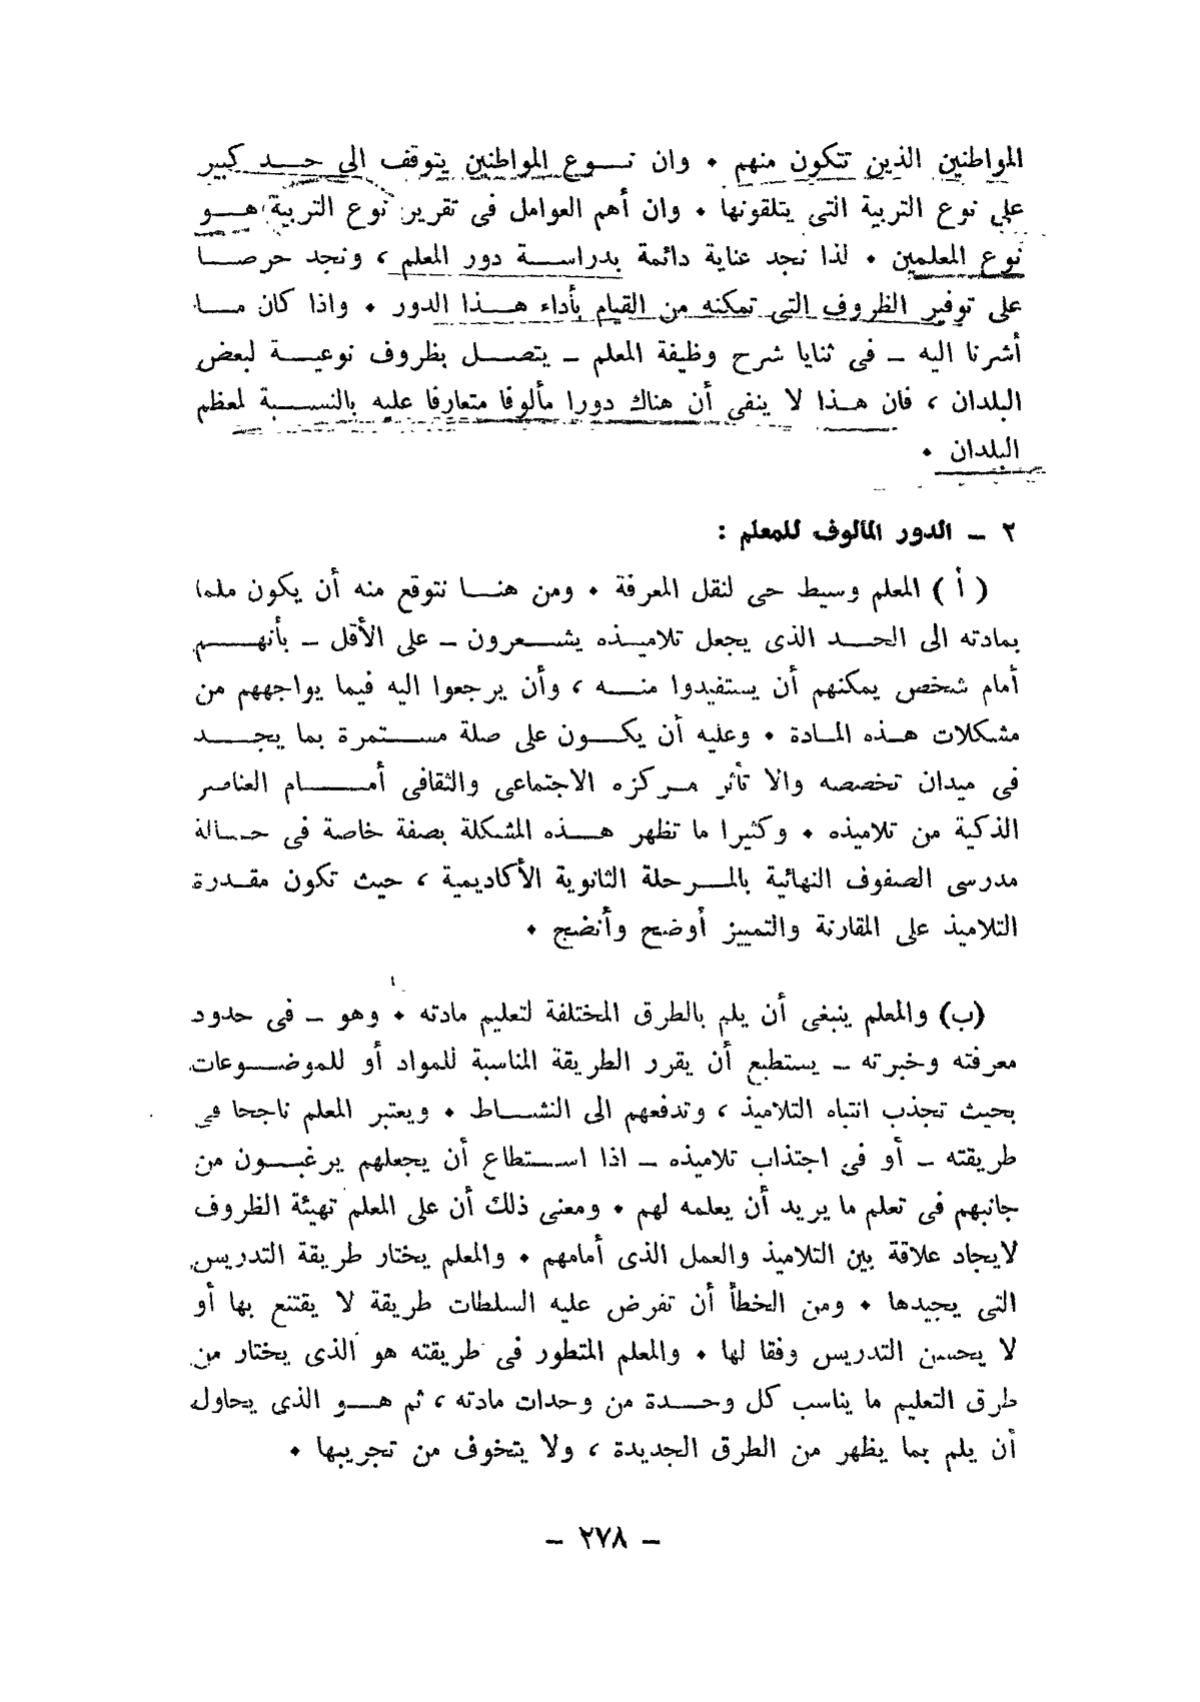 المواطنين الذين تتكون منهم . وان نـــوع المواطنين يتوقف الى حـــد كبير
على نوع التربية التى يتلقونها . وان أهم العوامل فى تقرير نوع التربية هـــو
نوع المعلمين . لذا نجد عناية دائمة بدراســـة دور المعلم ، ونجد حرصـــا
على توفير الظروف التى تمكنه من القيام بأداء هـــذا الدور . واذا كان مـــا
أشرنا اليه – فى ثنايا شرح وظيفة المعلم – يتصـــل بظروف نوعيـــة لبعض
البلدان ، فان هـــذا لا ينفى أن هناك دورا مألوفا متعارفا عليه بالنســـبة لمعظم
البلدان .
٢ – الدور المألوف للمعلم :
( أ ) المعلم وسيط حى لنقل المعرفة . ومن هنـــا نتوقع منه أن يكون ملما
بمادته الى الحـــد الذى يجعل تلاميـــذه يشـــعرون – على الأقل – بأنهـــم
أمام شخص يمكنهم أن يستفيدوا منـــه ، وأن يرجعوا اليه فيما يواجههم من
مشكلات هـــذه المـادة . وعليه أن يكـــون على صلة مســـتمرة بما يجـــد
فى ميدان تخصصه والا تأثر مـركزه الاجتماعى والثقافى أمـــام العناصر
الذكية من تلاميذه . وكثيرا ما تظهر هـــذه المشكلة بصفة خاصة فى حـــالة
مدرسى الصفوف النهائية بالمـــرحلة الثانوية الأكاديمية ، حيث تكون مقـــدرة
التلاميذ على المقارنة والتمييز أوضح وأنضج .
(ب) والمعلم ينبغى أن يلم بالطرق المختلفة لتعليم مادته . وهو – فى حدود
معرفته وخبرته – يستطيع أن يقرر الطريقة المناسبة للمواد أو للموضـــوعات
بحيث تجذب انتباه التلاميذ ، وتدفعهم الى النشـــاط . ويعتبر المعلم ناجحا في
طريقته – أو فى اجتذاب تلاميذه – اذا اســـتطاع أن يجعلهم يرغبـــون من
جانبهم فى تعلم ما يريد أن يعلمه لهم . ومعنى ذلك أن على المعلم تهيئة الظروف
لايجاد علاقة بين التلاميذ والعمل الذى أمامهم . والمعلم يختار طريقة التدريس
التى يجيدها . ومن الخطأ أن تفرض عليه السلطات طريقة لا يقتنع بها أو
لا يحسن التدريس وفقا لها . والمعلم المتطور فى طريقته هو الذى يختار من
طرق التعليم ما يناسب كل وحـــدة من وحدات مادته ، ثم هـــو الذى يحاول
أن يلم بما يظهر من الطرق الجديدة ، ولا يتخوف من تجريبها .
– ٢٧٨ –